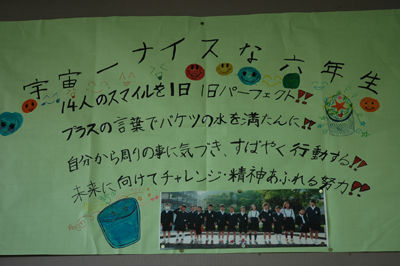 宇宙一ナイスな六年生
14人のスマイルを1日1日パーフェクト!!
プラスの言葉でバケツの水を満たんに!!
自分から周りの事に気づき、すばやく行動する!!
未来に向けてチャレンジ・精神あふれる努力!!